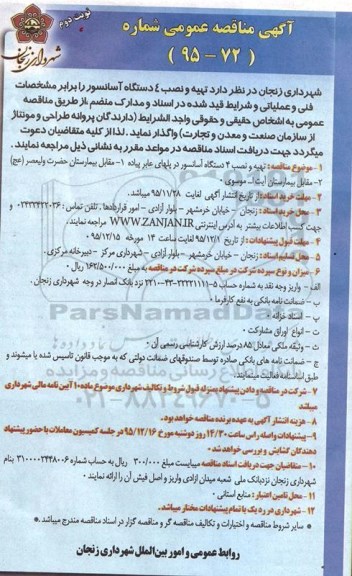 نوبت دوم
آگهی مناقصه عمومی شماره
( ۷۲ - ۹۵ )
شهرداری زنجان
شهرداری زنجان در نظر دارد تهیه و نصب ٤ دستگاه آسانسور را برابر مشخصات
فنی و عملیاتی و شرایط قید شده در اسناد و مدارک منضم ،از طریق مناقصه
عمومی به اشخاص حقیقی و حقوقی واجد الشرایط (دارندگان پروانه طراحی و مونتاژ
از سازمان صنعت و معدن و تجارت) واگذار نماید . لذا از کلیه متقاضیان دعوت
میگردد جهت دریافت اسناد مناقصه در مواعد مقرر به نشانی ذیل مراجعه نمایند.
۱- موضوع مناقصه : تهیه و نصب ۴ دستگاه آسانسور در پلهای عابر پیاده ۱- مقابل بیمارستان حضرت ولیعصر (عج)
۲- مقابل بیمارستان آیت ا... موسوی
۲- مهلت خرید اسناد : از تاریخ انتشار آگهی لغایت ۹۵/۱۱/۲۸ میباشد.
۳- محل خرید اسناد : زنجان - خیابان خرمشهر - بلوار آزادی - امور قراردادها ، تلفن تماس : و
جهت کسب اطلاعات بیشتر به آدرس اینترنتی WWW.ZANJAN.IR مراجعه نمایند.
۴- مهلت قبول پیشنهادات : از تاریخ ۹۵/۱۲/۱ لغایت ساعت ۱۴ مورخه ۹۵/۱۲/۱۵
۵- محل تسلیم اسناد : زنجان - خیابان خرمشهر - بلوار آزادی - شهرداری مرکز - دبیرخانه مرکزی.
۶- میزان و نوع سپرده شرکت در مناقصه : مبلغ سپرده شرکت در مناقصه به مبلغ ۱۶۲/۵۰۰/۰۰۰ ریال
الف - واریز وجه نقد به شماره حساب نزد بانک انصار در وجه شهرداری زنجان.
ب - ضمانت نامه بانکی به نفع کارفرما .
پ - اسناد خزانه .
ت - انواع اوراق مشارکت .
ث - وثیقه ملکی معادل ۸۵ درصد ارزش کارشناسی رسمی آن .
ج - ضمانت نامه های بانکی صادره توسط صندوقهای ضمانت دولتی که به موجب قانون تاسیس شده یا میشوند و
طبق اساسنامه فعالیت مینمایند.
۷- شرکت در مناقصه و دادن پیشنهاد بمنزله قبول شروط و تکالیف شهرداری موضوع ماده ۱۰ آیین نامه مالی شهرداری
میباشد
۸- هزینه انتشار آگهی به عهده برنده مناقصه خواهد بود.
۹- پیشنهادات واصله راس ساعت ۱۴/۳۰ روز دوشنبه مورخ ۹۵/۱۲/۱۶ در جلسه کمیسیون معاملات با حضور پیشنهاد
دهندگان گشایش و بررسی خواهد شد.
۱۰- متقاضیان جهت دریافت اسناد مناقصه میبایست مبلغ ۳۰۰/۰۰۰ ریال به حساب شماره ۳۱۰۰۰۰۳۴۴۸۰۰۶ بنام
شهرداری زنجان نزد بانک ملی شعبه میدان آزادی واریز و اصل فیش آن را ارائه نمایند .
۱۱- محل تامین اعتبار : منابع استانی .
۱۲- شهرداری در رد یک یا تمام پیشنهادات مختار میباشد.
* سایر شروط مناقصه و اختیارات و تکالیف مناقصه گر و مناقصه گزار در اسناد مناقصه مندرج میباشد.*
روابط عمومی و امور بین الملل شهرداری زنجان
ParsNamadData
۰۲۱-۸۸۳۴۹۶۷۰-۵